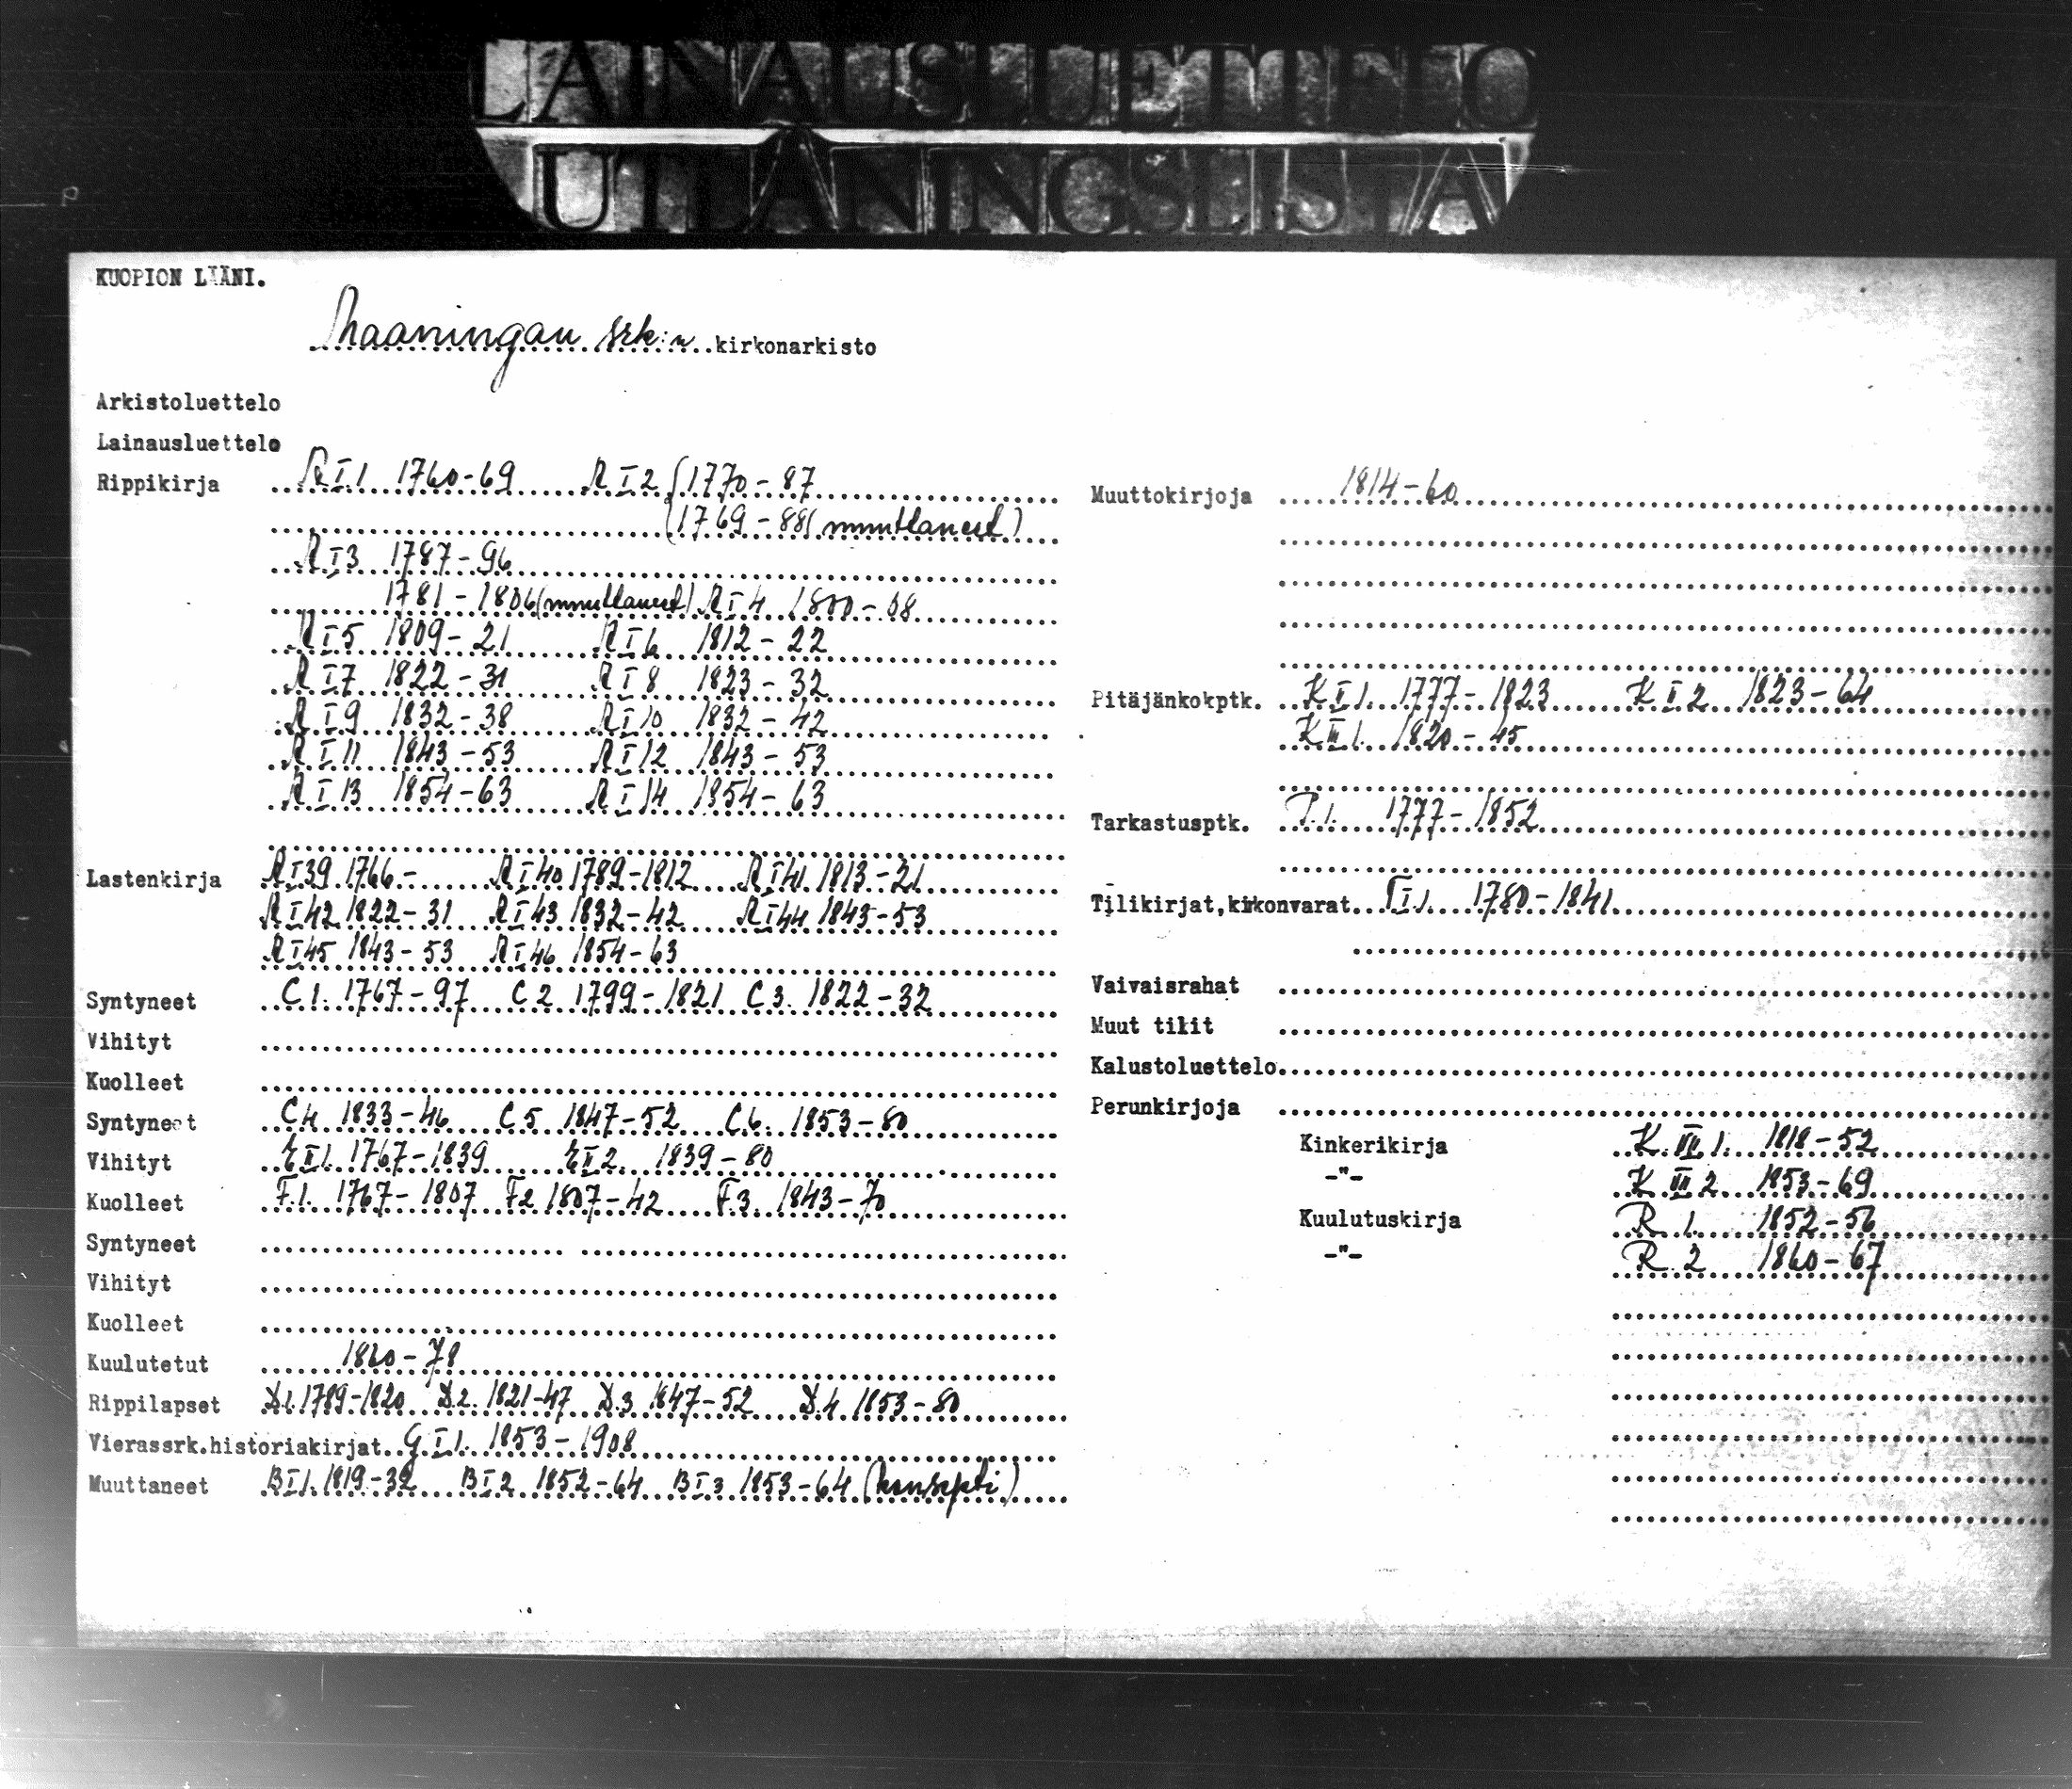 LAINAUSLUETTELO
UTLÅNINGSLISTA
KUOPION LÄÄNI.
Maaningan srk:n kirkonarkisto
Arkistoluettelo
Lainausluettelo
Rippikirja R I 1 1760-69 R I 2 (1770-87
(1769-88 (muuttaneet)
R I 3 1787-96
1781-1806 (muuttaneet) R I 4 1800-08
R I 5 1809-21 R I 6 1812-22
R I 7 1822-31 R I 8 1823-32
R I 9 1832-38 R I 10 1832-42
R I 11 1843-53 R I 12 1843-53
R I 13 1854-63 R I 14 1854-63
Lastenkirja R I 39 1766- R I 40 1789-1812 R I 41 1813-21
R I 42 1822-31 R I 43 1832-42 R I 44 1843-53
R I 45 1843-53 R I 46 1854-63
Syntyneet C 1. 1767-97 C 2 1799-1821 C 3. 1822-32
Vihityt
Kuolleet
Syntyneet C 4 1833-46 C 5 1847-52 C 6. 1853-80
Vihityt E II 1. 1767-1839 E II 2. 1839-80
Kuolleet F.1. 1767-1807 F 2 1807-42 F.3. 1843-70
Syntyneet
Vihityt
Kuolleet
Kuulutetut 1860-78
Rippilapset D.1. 1789-1820 D.2. 1821-47 D.3 1847-52 D.4. 1853-80
Vierassrk.historiakirjat G I 1. 1853-1908
Muuttaneet B I 1. 1819-32 B I 2 1852-64 B I 3 1853-64 (konsepti)
Muuttokirjoja 1814-60
Pitäjänkokptk. K I 1. 1777-1823 K I 2 1823-64
K III 1. 1820-45
Tarkastusptk. P.1. 1777-1852
Tilikirjat,kirkonvarat T I 1 1780-1841
Vaivaisrahat
Muut tilit
Kalustoluettelo
Perunkirjoja
Kinkerikirja K III 1. 1818-52
-"- K III 2 1853-69
Kuulutuskirja R 1. 1852-56
-"- R. 2 1860-67